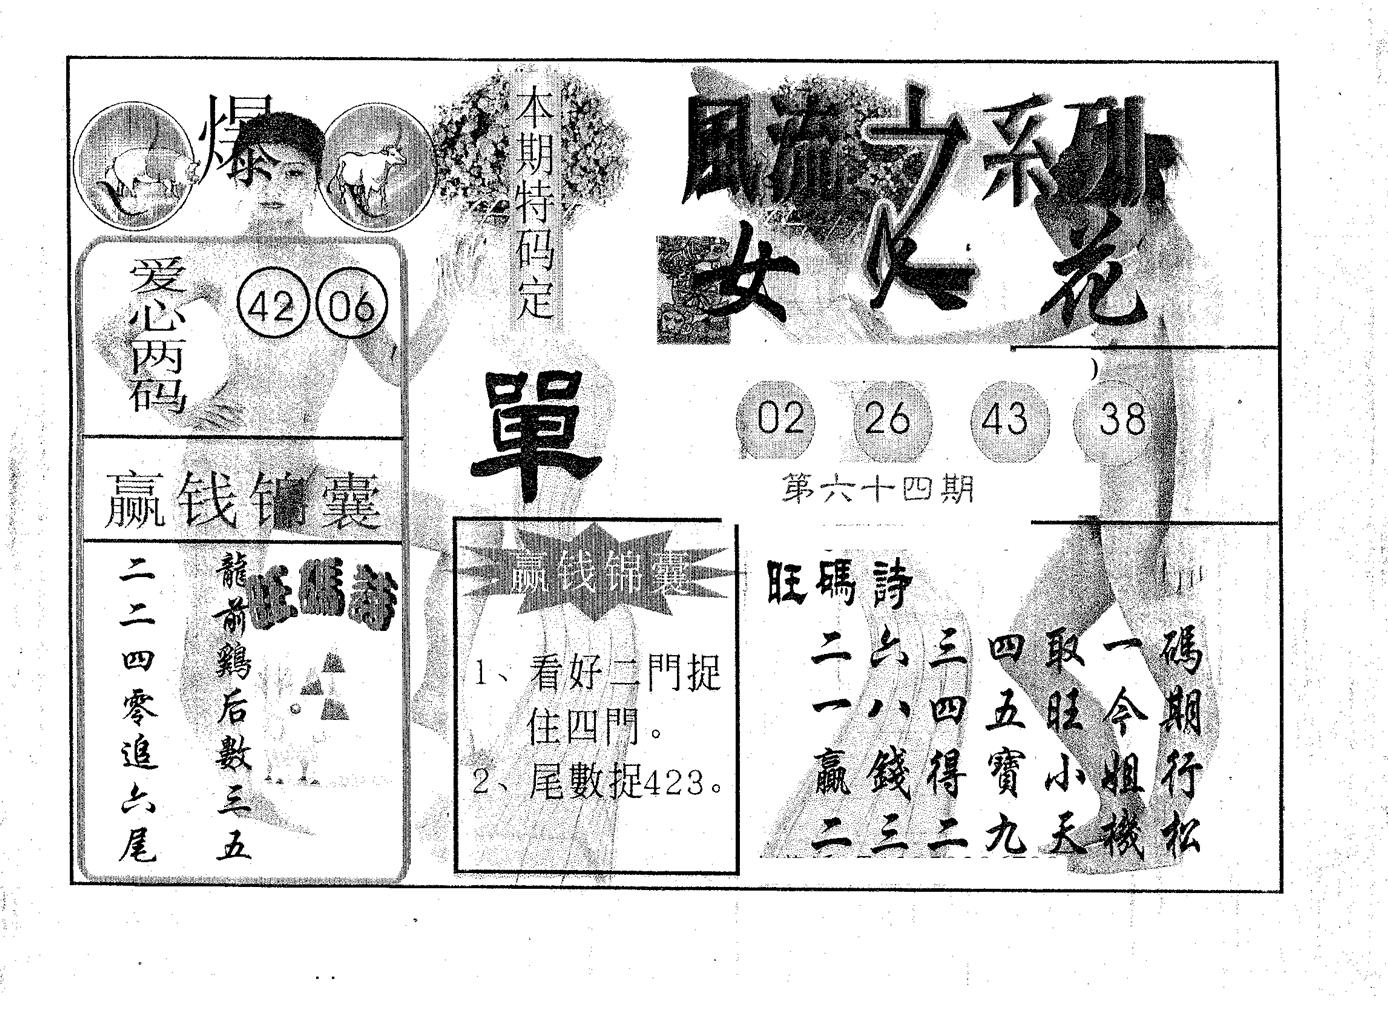 爆
爱心两码
42 06
赢钱锦囊
龍前鷄后數三五
二二四零追六尾
旺碼詩
本期特码定
單
赢钱锦囊
1、看好二門捉
住四門。
2、尾數捉423。
風流之系列
女人花
02 26 43 38
第六十四期
旺碼詩
二六三四取一碼
一八四五旺今期
贏錢得寶小姐行
二三二九天機松